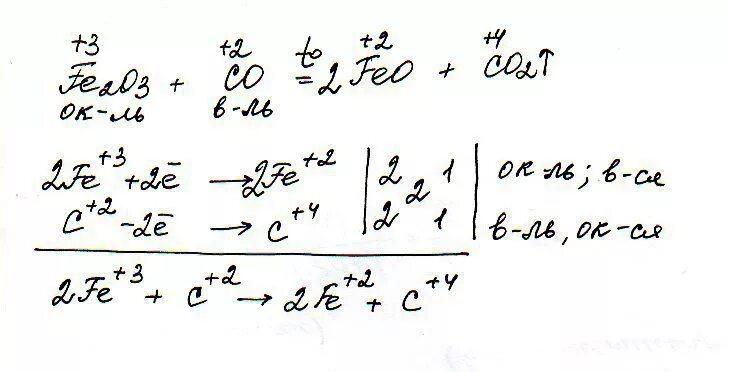 +3 +2 t° +2 +4
Fe2O3 + CO = 2FeO + CO2↑
ок-ль в-ль
2Fe+3 + 2ē → 2Fe+2 | 2 2 1 | ок-ль; в-ся
C+2 - 2ē → C+4 | 2 1 | в-ль, ок-ся
2Fe+3 + C+2 → 2Fe+2 + C+4